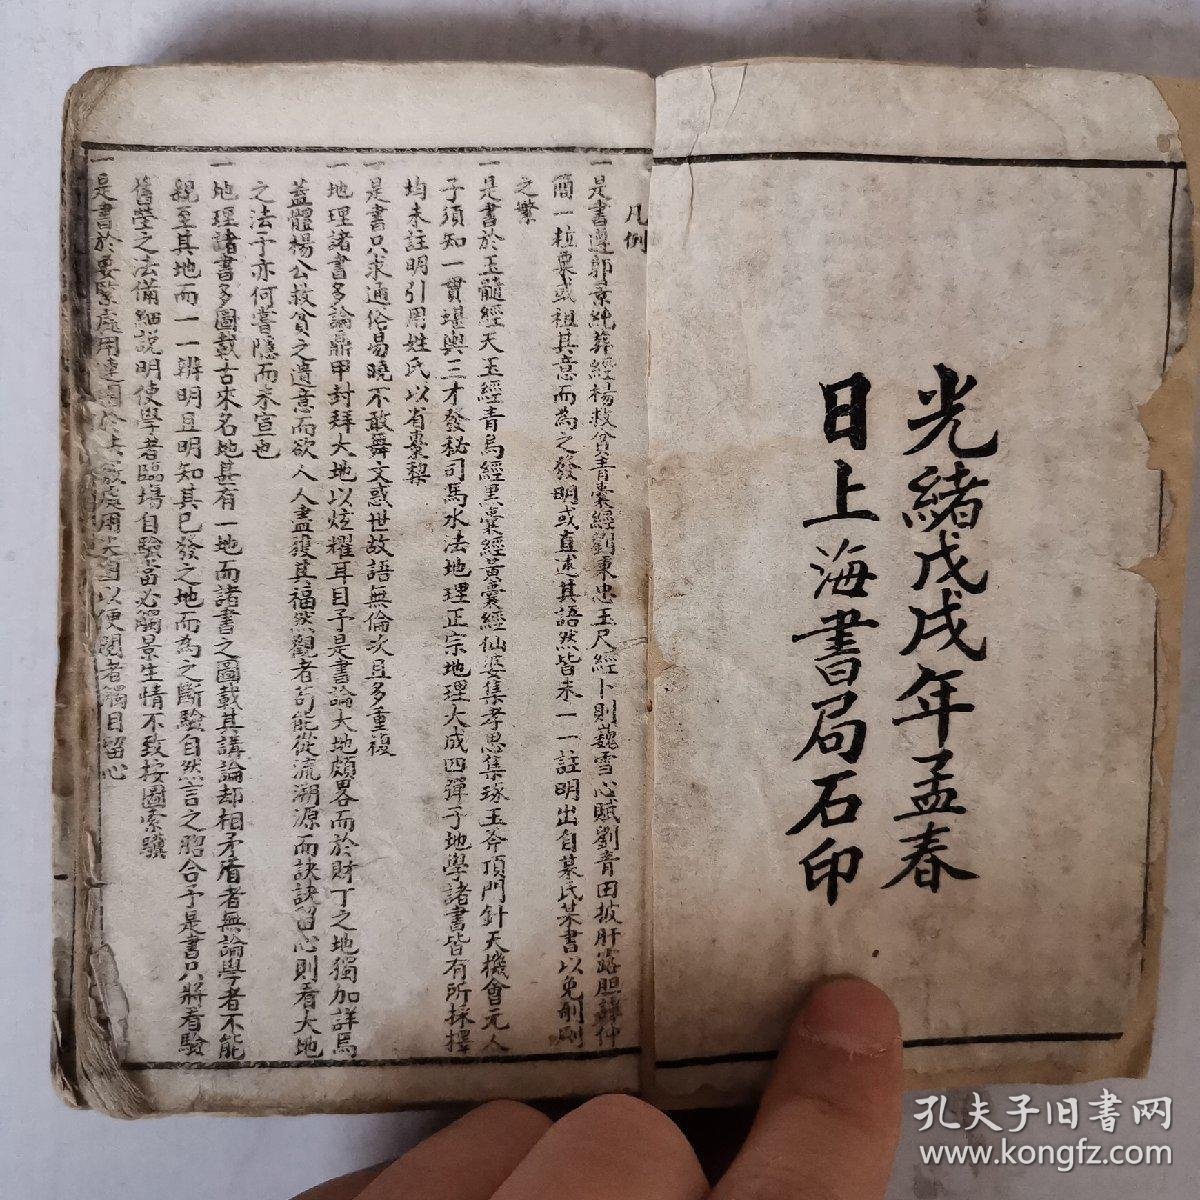 光緒戊戌年孟春
日上海書局石印
凡例
一是書遵郭景純葬經楊救貧青囊經劉秉忠玉尺經卜則巍雪心賦劉青田披肝露胆譚仲
簡一粒粟或祖其意而為之發明或直述其語然皆未一一註明出自某氏某書以免剞劂
之繁
一是書於玉髓經天玉經青烏經黑囊經黃囊經仙婆集孝思集琢玉斧頂門針天機會元人
子須知一貫堪輿三才發秘司馬水法地理正宗地理大成四彈子地學諸書皆有所採擇
均未註明引用姓氏以省棗梨
一是書只求通俗易曉不敢舞文惑世故語無倫次且多重複
一地理諸書多論鼎甲封拜大地以炫耀耳目予是書論大地頗畧而於財丁之地獨加詳焉
蓋體楊公救貧之遺意而欲人人盡獲其福然觀者苟能從流溯源而訣訣留心則看大地
之法予亦何嘗隱而未宣也
一地理諸書多圖載古來名地甚有一地而諸書之圖載其講論却相矛盾者無論學者不能
親至其地而一一辨明且明知其已發之地而為之斷驗自然言之脗合予是書只將看驗
舊塋之法備細説明使學者臨塲自驗當必觸景生情不致按圖索驥
一是書於要緊處用連圈於共用尖圈以便閱者觸目留心
孔夫子旧書网
www.kongfz.com